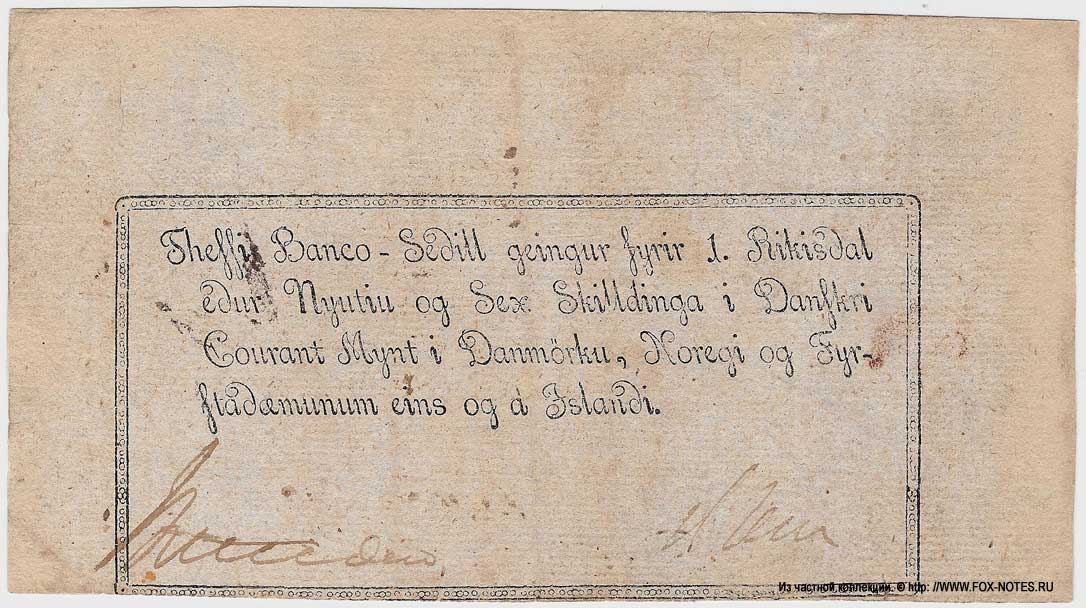 Theſſi Banco - Sedill geingur fyrir 1. Rikisdal
edur Nyutiu og Sex Skilldinga i Danſkri
Courant Mynt i Danmörku, Noregi og Fyr-
ſtådæmunum eins og á Islandi.
Из частной коллекции. © http: //WWW.FOX-NOTES.RU